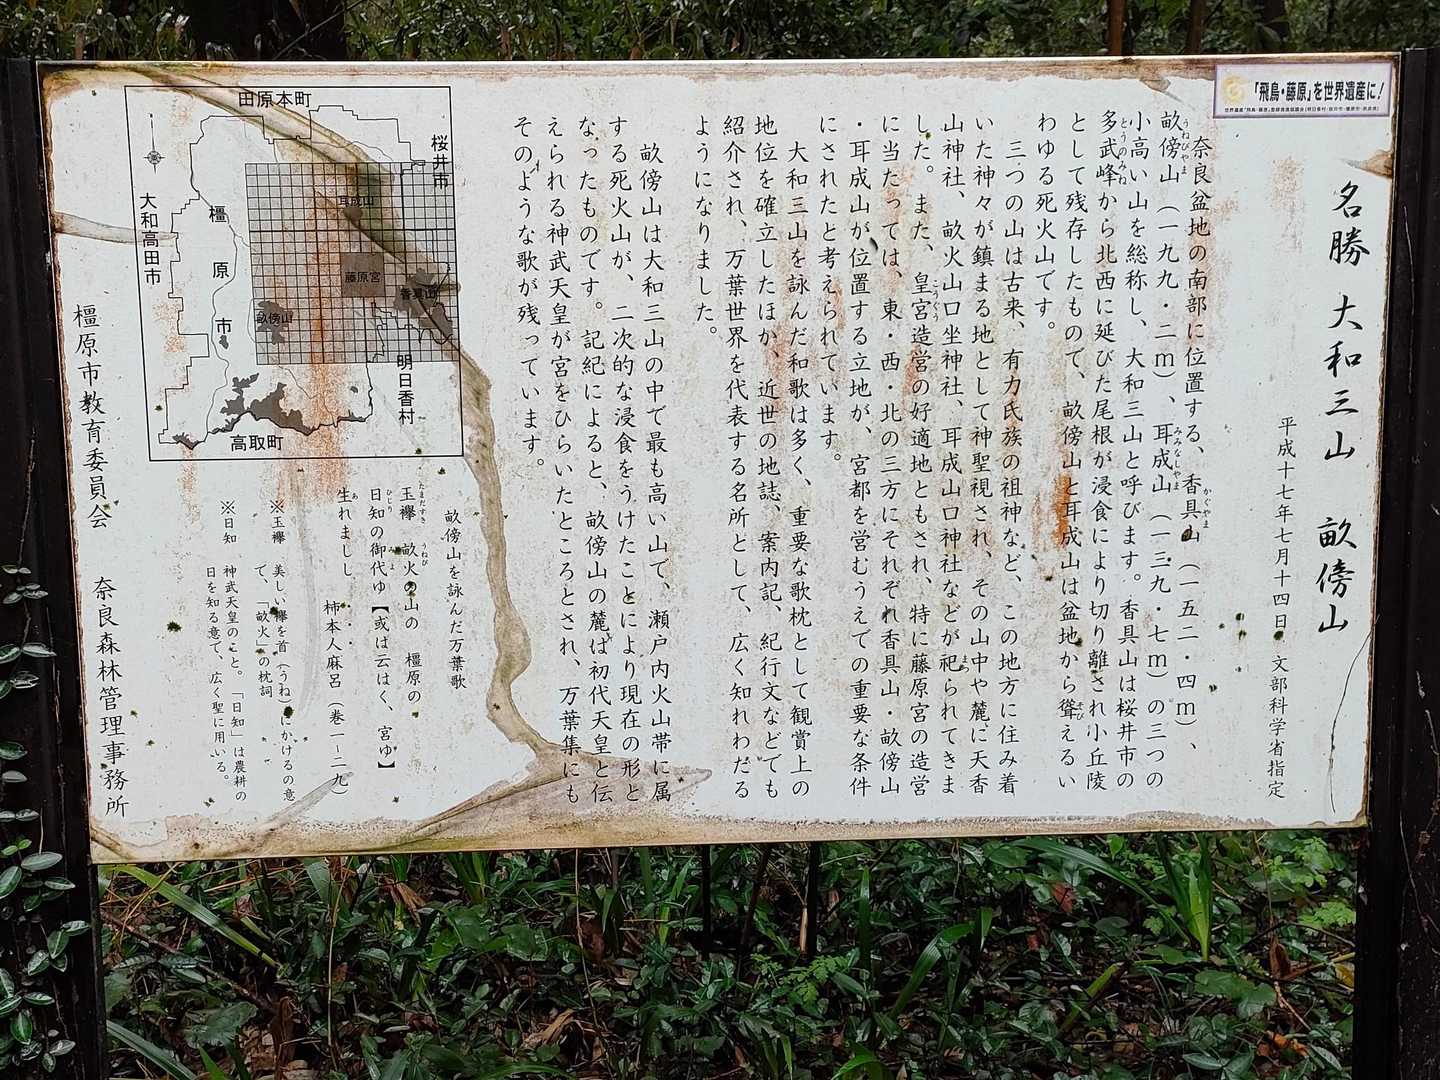 「飛鳥・藤原」を世界遺産に!
名勝 大和三山 畝傍山
平成十七年七月十四日 文部科学省指定
奈良盆地の南部に位置する、香具山（一五二・四ｍ）、
畝傍山（一九九・二ｍ）、耳成山（一三九・七ｍ）の三つの
小高い山を総称し、大和三山と呼びます。香具山は桜井市の
多武峰から北西に延びた尾根が浸食により切り離され小丘陵
として残存したもので、畝傍山と耳成山は盆地から聳えるい
わゆる死火山です。
三つの山は古来、有力氏族の祖神など、この地方に住み着
いた神々が鎮まる地として神聖視され、その山中や麓に天香
山神社、畝火山口坐神社、耳成山口神社などが祀られてきま
した。また、皇宮造営の好適地ともされ、特に藤原宮の造営
に当たっては、東・西・北の三方にそれぞれ香具山・畝傍山
・耳成山が位置する立地が、宮都を営むうえでの重要な条件
にされたと考えられています。
大和三山を詠んだ和歌は多く、重要な歌枕として観賞上の
地位を確立したほか、近世の地誌、案内記、紀行文などでも
紹介され、万葉世界を代表する名所として、広く知れわたる
ようになりました。
畝傍山は大和三山の中で最も高い山で、瀬戸内火山帯に属
する死火山が、二次的な浸食をうけたことにより現在の形と
なったものです。記紀によると、畝傍山の麓は初代天皇と伝
えられる神武天皇が宮をひらいたところとされ、万葉集にも
そのような歌が残っています。
畝傍山を詠んだ万葉歌
玉襷 畝火の山の 橿原の
日知の御代ゆ【或は云はく、宮ゆ】
生れましし・・・
柿本人麻呂（巻一−二九）
※玉襷 美しい襷を首（うね）にかけるの意
で、「畝火」の枕詞
※日知 神武天皇のこと。「日知」は農耕の
日を知る意で、広く聖に用いる。
橿原市教育委員会 奈良森林管理事務所
田原本町
桜井市
大和高田市
橿原市
耳成山
藤原宮
香具山
畝傍山
明日香村
高取町